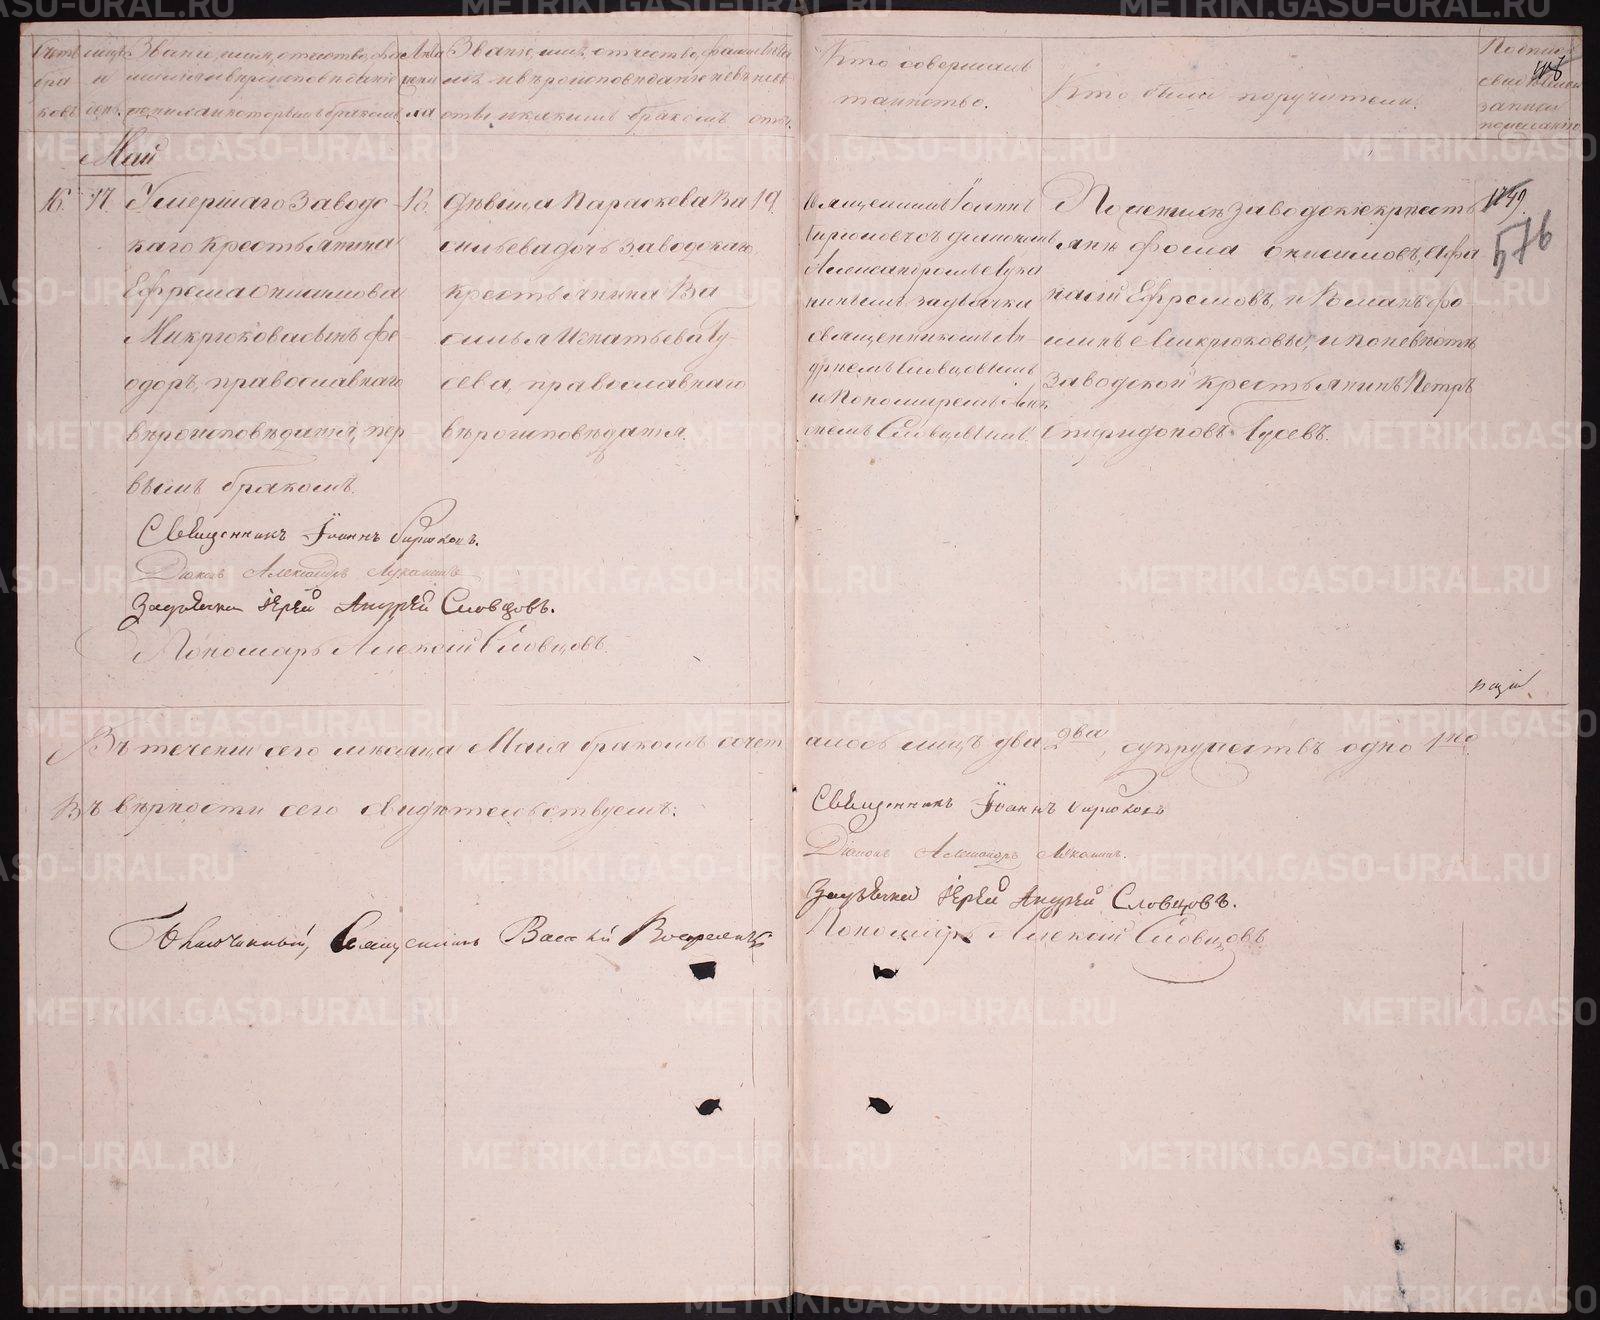 Счетъ браковъ
мѣсяцъ и день
Званіе, имя, отчество, фамилія и вѣроисповѣданіе жениха и которымъ бракомъ
Лѣта жениха
Званіе, имя, отчество, фамилія и вѣроисповѣданіе невѣсты и какимъ бракомъ
Лѣта невѣсты
Кто совершалъ
таинство.
Кто были поручители.
Подпись
свидѣтелей
записи
по желанію
Май
16. 17. Умершаго Заводс-
каго крестьянина
Ефрема Онисимова
Микрюкова сынъ Фе-
одоръ, православнаго
вѣроисповѣданія, пер
вымъ бракомъ.
18.
Дѣвица Параскева Ва
сильева дочь Заводскаго
крестьянина Ва-
силья Игнатьева Гу-
сева, православнаго
вѣроисповѣданія.
19.
Священникъ Іоаннъ
Бирюковъ съ Діакономъ
Александромъ Лука
нинымъ задьячка
священникомъ Ан
дреемъ Словцовымъ
и Пономаремъ Але
ксѣемъ Словцовымъ.
По женихѣ заводскіе кресть
яне Фома Онисимовъ, Афа
насій Ефремовъ, и Романъ Фо
минъ Микрюковы, и по невѣстѣ
Заводской крестьянинъ Петръ
Спиридоновъ Гусевъ.
1749.
576
Священникъ Іоаннъ Бирюковъ.
Діаконъ Александръ Луканинъ
Задьячка Іерей Андрей Словцовъ.
Пономарь Алексій Словцовъ.
Въ теченіи сего мѣсяца Маія бракомъ сочет
алось лицъ два 2ва, супружествъ одно 1но.
Въ вѣрности сего свидѣтельствуемъ:
Священникъ Іоаннъ Бирюковъ
Діаконъ Александръ Луканинъ.
Задьячка Іерей Андрей Словцовъ.
Пономарь Алексій Словцовъ
Священникъ Василій
METRIKI.GASO-URAL.RU